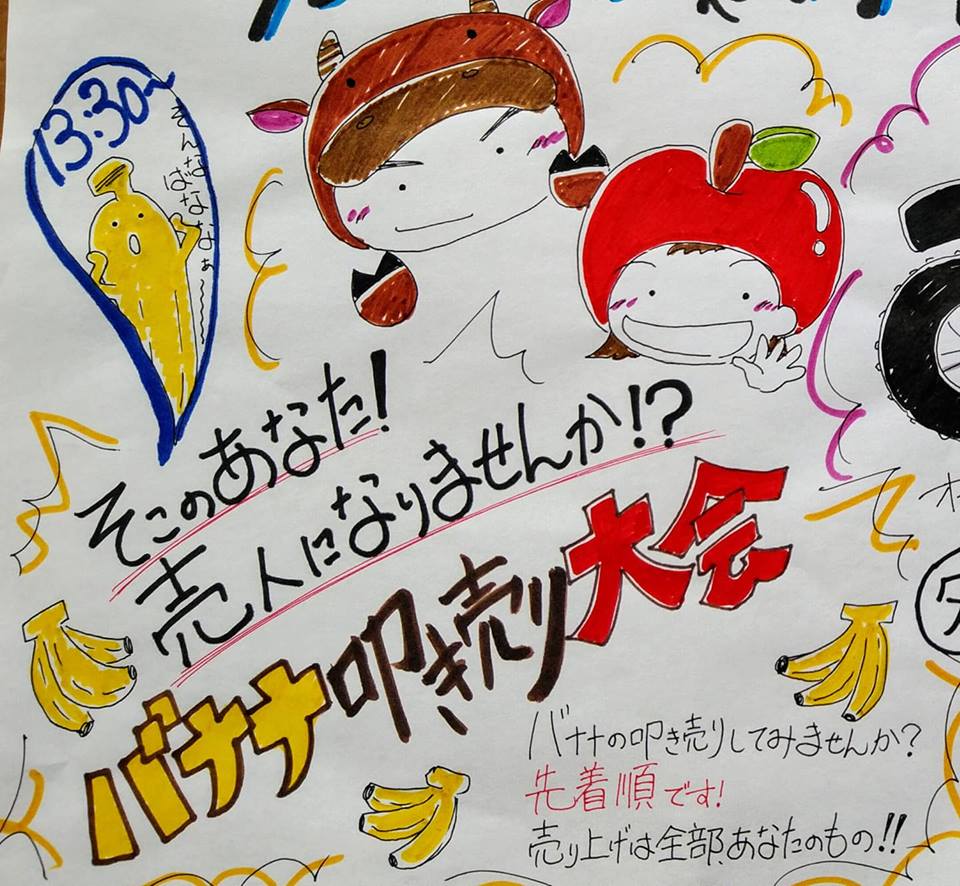 13:30~
そんな
ばななぁ〜
そこのあなた!
売人になりませんか!?
バナナ叩き売り大会
バナナの叩き売りしてみませんか?
先着順です!
売り上げは全部、あなたのもの!!